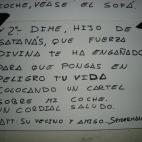 COCHE, VEASE EL SOFÁ.
Y 2º DIME, HIJO DE
SATANÁS, QUE FUERZA
DIVINA TE HA ENGAÑADO
PARA QUE PONGAS EN
PELIGRO TU VIDA
COLOCANDO UN CARTEL
SOBRE MI COCHE.
UN CORDIAL SALUDO.
ATT: SU VECINO Y AMIGO.